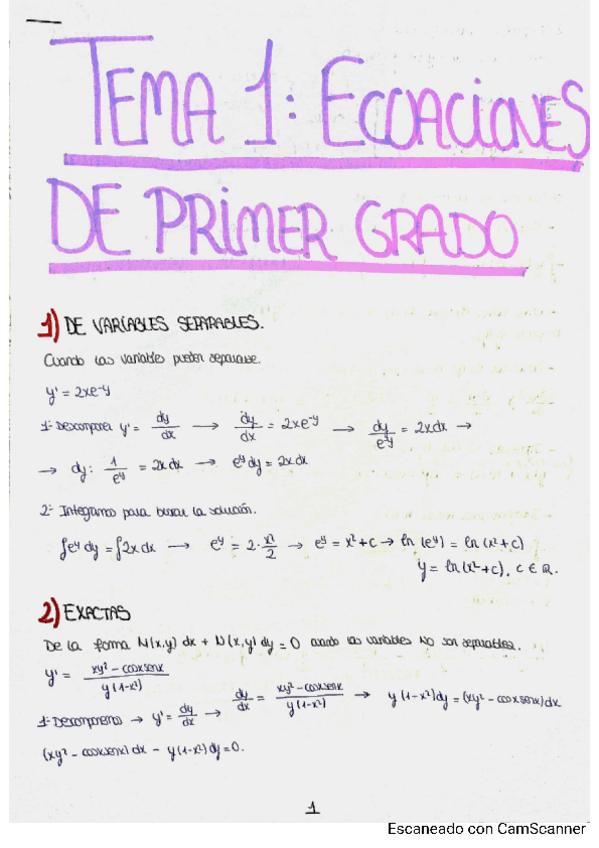 TEMA 1: ECUACIONES
DE PRIMER GRADO
1) DE VARIABLES SEPARABLES.
Cuando las variables pueden separarse.
y' = 2xe^-y
1- Descomponer y' = dy/dx → dy/dx = 2xe^-y → dy/e^-y = 2xdx →
→ dy : 1/e^y = 2xdx → e^y dy = 2xdx
2- Integramos para buscar la solución.
∫e^y dy = ∫2xdx → e^y = 2·x²/2 → e^y = x²+c → ln(e^y) = ln(x²+c)
y = ln(x²+c), c ∈ ℝ.
2) EXACTAS
De la forma M(x,y) dx + N(x,y) dy = 0 cuando las variables NO son separables.
y' = xy² - cosxsenx / y(1-x²)
1- Descomponemos → y' = dy/dx → dy/dx = xy² - cosxsenx / y(1-x²) → y(1-x²)dy = (xy² - cosxsenx)dx
(xy² - cosxsenx) dx - y(1-x²) dy = 0.
1
Escaneado con CamScanner